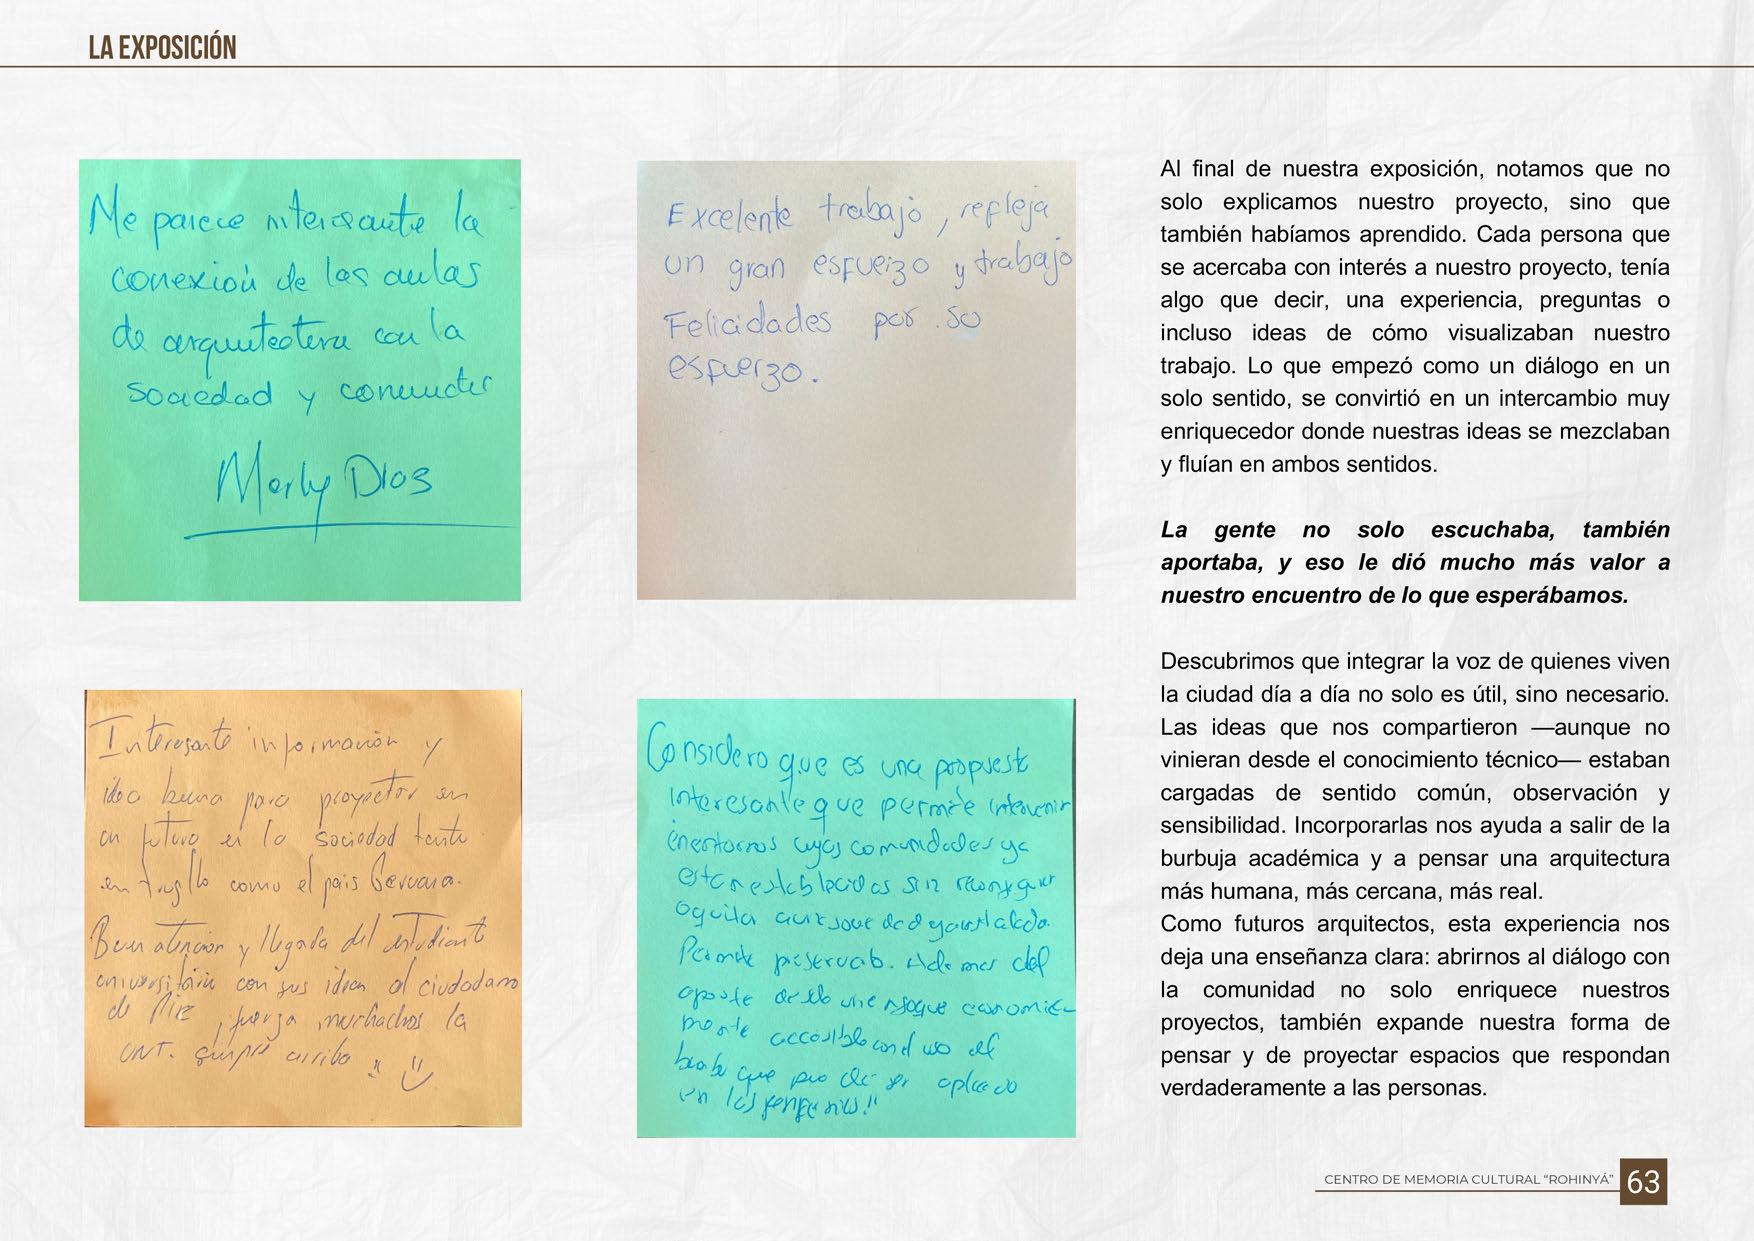 LA EXPOSICIÓN
Me parece interesante la
conexión de las aulas
de arquitectura con la
sociedad y
Marly Dios
Excelente trabajo, refleja
un gran esfuerzo y trabajo
Felicidades por su
esfuerzo.
Interesante información y
idea buena para proyectar en
un futuro en la sociedad tanto
en Trujillo como el país
Buen atención y llegada del estudiante
universitario con sus ideas al ciudadano
de , fuerza muchachos la
UNT. siempre arriba
Considero que es una propuesta
interesante que permite intervenir
en entornos cuyas comunidades ya
estan establecidas sin
o quitar
Permite Ademas del
economica
mente accesible con el uso del
que puede ser aplicado
en
Al final de nuestra exposición, notamos que no
solo explicamos nuestro proyecto, sino que
también habíamos aprendido. Cada persona que
se acercaba con interés a nuestro proyecto, tenía
algo que decir, una experiencia, preguntas o
incluso ideas de cómo visualizaban nuestro
trabajo. Lo que empezó como un diálogo en un
solo sentido, se convirtió en un intercambio muy
enriquecedor donde nuestras ideas se mezclaban
y fluían en ambos sentidos.
La gente no solo escuchaba, también
aportaba, y eso le dió mucho más valor a
nuestro encuentro de lo que esperábamos.
Descubrimos que integrar la voz de quienes viven
la ciudad día a día no solo es útil, sino necesario.
Las ideas que nos compartieron —aunque no
vinieran desde el conocimiento técnico— estaban
cargadas de sentido común, observación y
sensibilidad. Incorporarlas nos ayuda a salir de la
burbuja académica y a pensar una arquitectura
más humana, más cercana, más real.
Como futuros arquitectos, esta experiencia nos
deja una enseñanza clara: abrirnos al diálogo con
la comunidad no solo enriquece nuestros
proyectos, también expande nuestra forma de
pensar y de proyectar espacios que respondan
verdaderamente a las personas.
CENTRO DE MEMORIA CULTURAL “ROHINYÁ” 63